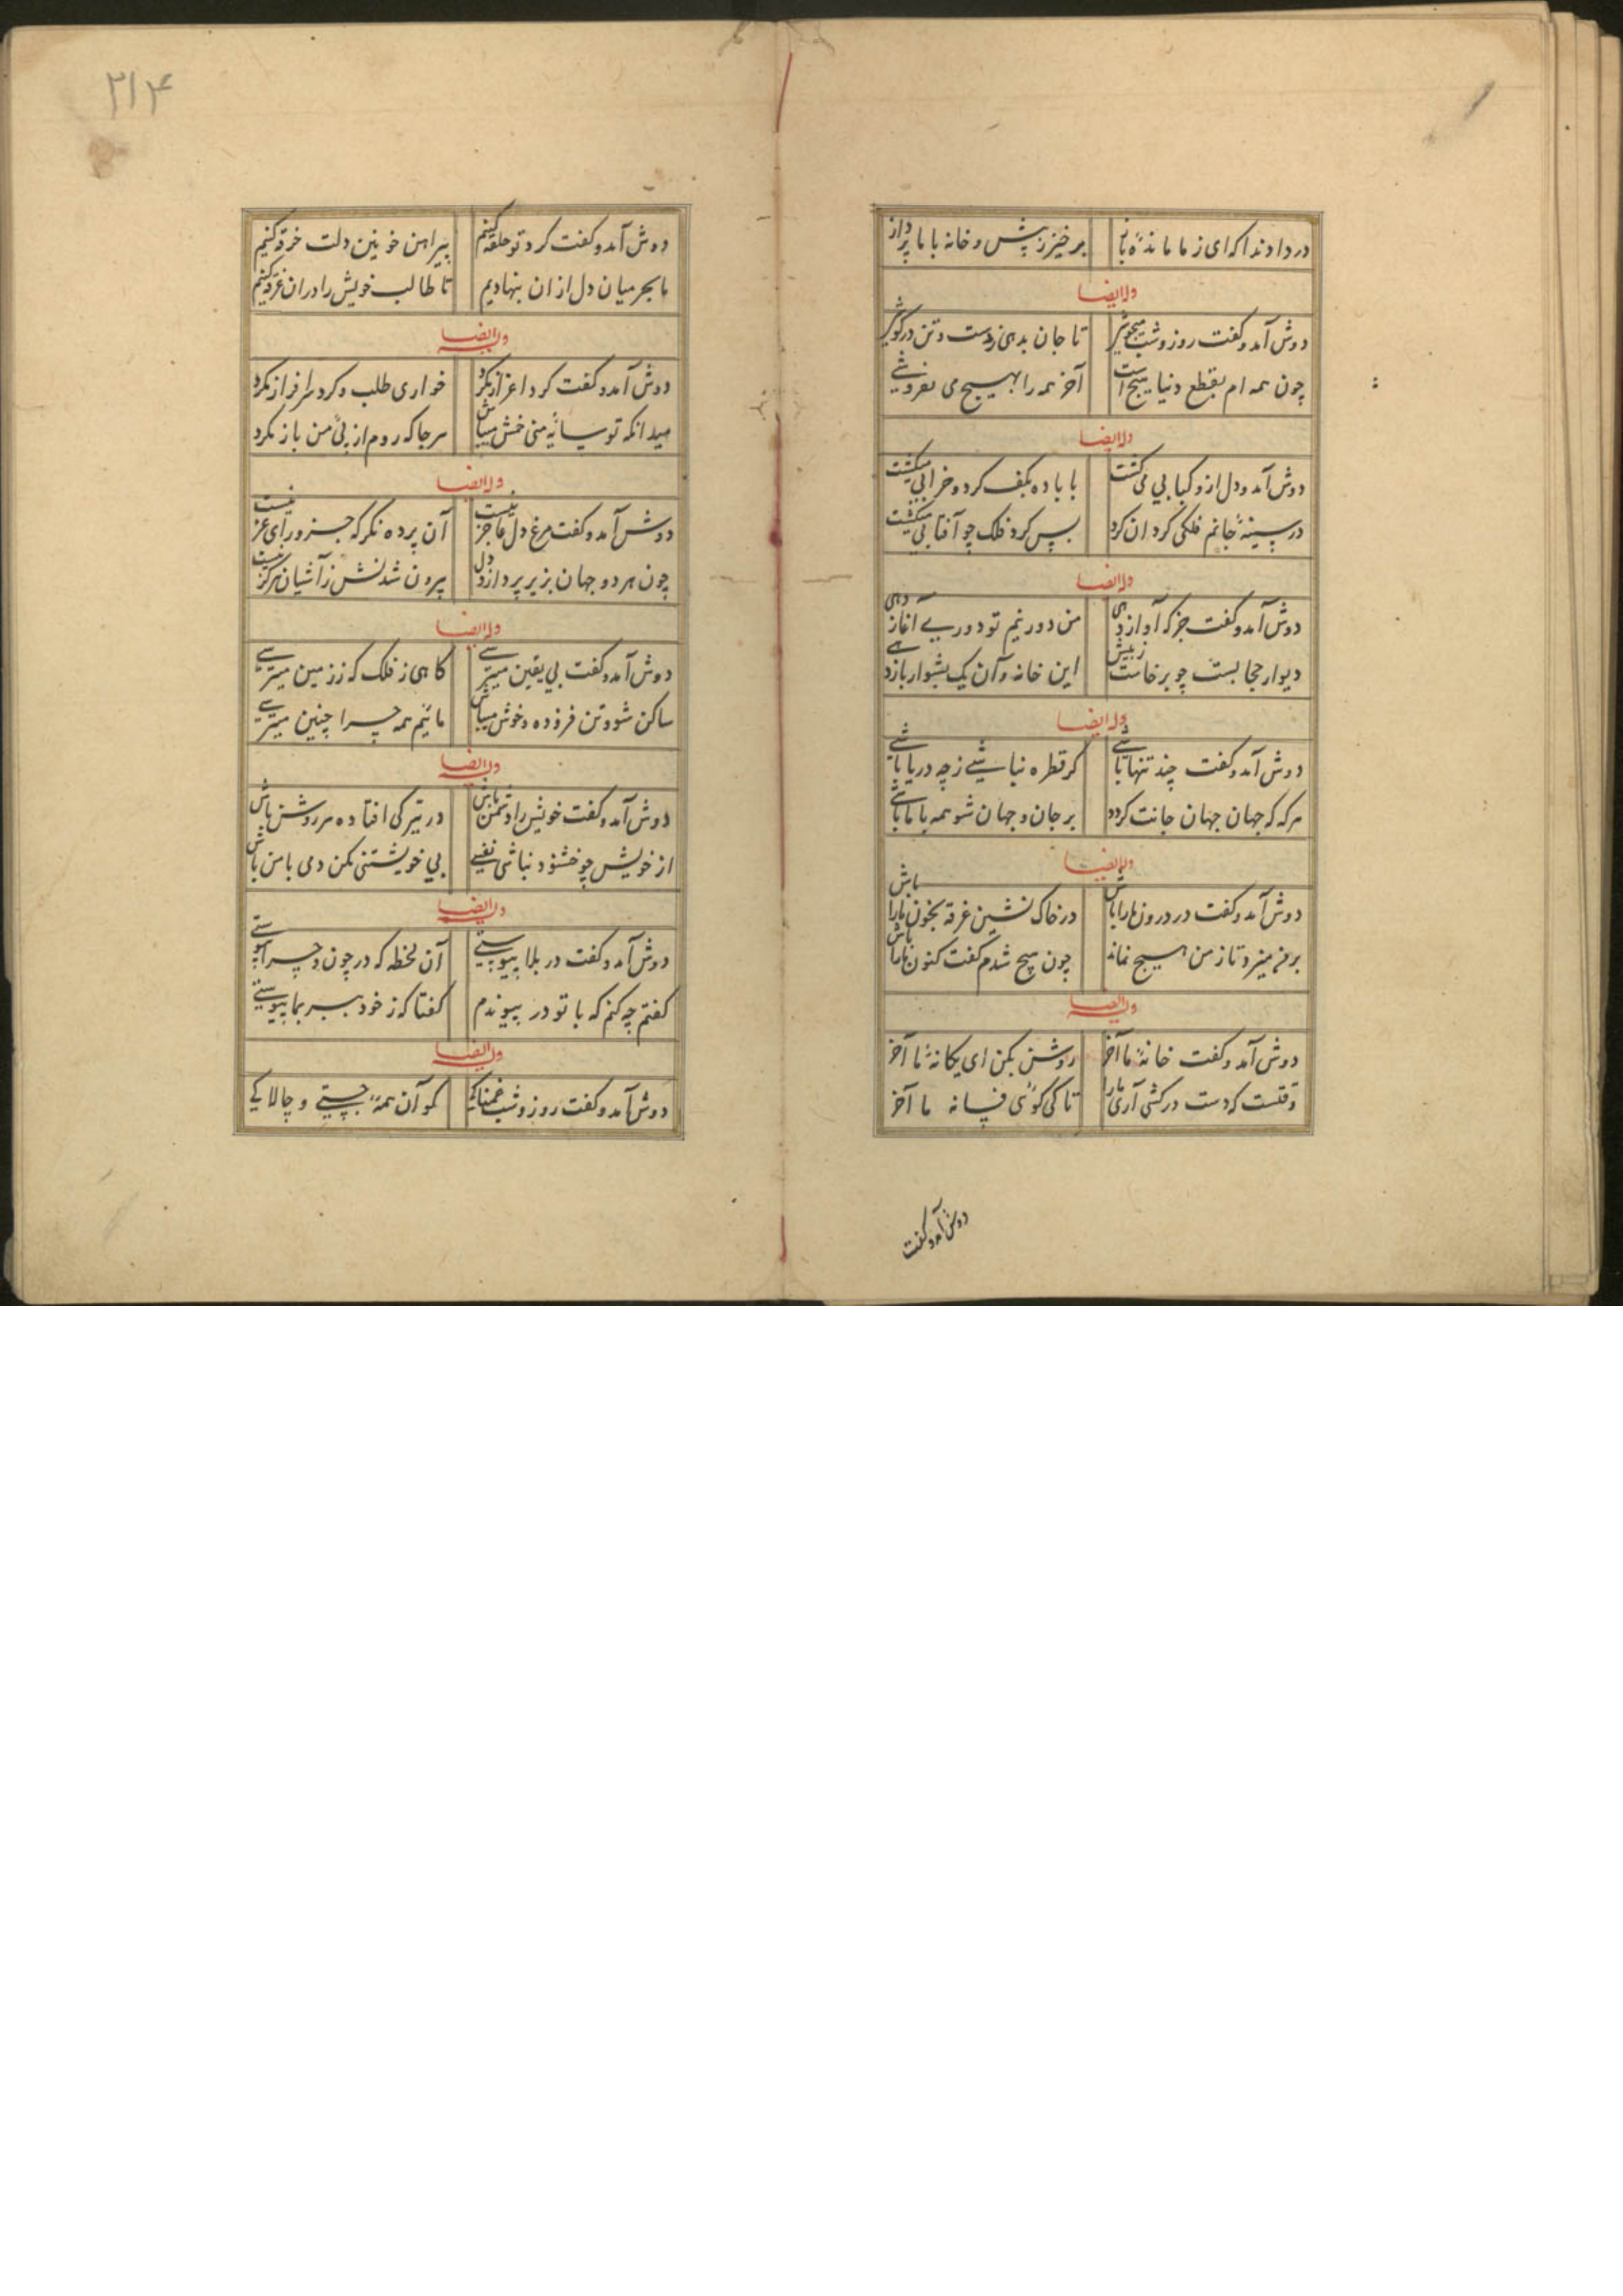 درداد ندا که ای ز ما مانده باز برخیز ز پیش و خانه با ما پرداز
وله ایضا
دوش آمد و گفت روز و شب میجوشی تا جان بدهی ز دست و تن در کوشی
چون همه ام بقطع دنیا هیچ است آخر همه را بهیچ می نفروشی
وله ایضا
دوش آمد و دل ازو کبابی می گشت با باده بکف کرد و خرابی میگشت
در سینهٔ جانم فلکی گردان کرد پس گرد فلک چو آفتابی میگشت
وله ایضا
دوش آمد و گفت جز که آواز دهی من دور نیم تو دوریی آغاز دهی
دیوار حجابست چو برخاست ز پیش این خانه و آن یک بشود باز دهی
وله ایضا
دوش آمد و گفت چند تنها باشی گر قطره نباشی ز چه دریا باشی
هر که که جهان جهان جانت گردد بر جان و جهان شو همه با ما باشی
وله ایضا
دوش آمد و گفت در درون ما را باش در خاک نشین غرقه بخون ما را باش
برفت تا ز من هیچ نماند چون هیچ شدم گفت کنون ما را باش
وله ایضا
دوش آمد و گفت خانهٔ ما آخر روشن بکن ای یگانهٔ ما آخر
وقتست که دست درکشی آری ما را تا کی گوئی فسانه ما آخر
دوش آمد و گفت
۲۱۴
دوش آمد و گفت گرد تو حلقه کنیم پیراهن خونین دلت خرقه کنیم
ما بحر میان دل از ان بنهادیم تا طالب خویش را در ان غرقه کنیم
وله ایضا
دوش آمد و گفت گرد اعزاز مگرد خواری طلب و گرد سرافراز مگرد
میدانکه تو سایهٔ منی خمش میباش هر جا که روم از پی من باز مگرد
وله ایضا
دوش آمد و گفت مرغ دل عاجز نیست آن پرده نگر که جز ورای عز نیست
چون هر دو جهان بزیر پر دارد دل بیرون شدنش ز آشیان هرگز نیست
وله ایضا
دوش آمد و گفت بی یقین میترسی گاهی ز فلک گه ز زمین میترسی
ساکن شو و تن فرو ده و خوش میباش مائیم همه چرا چنین میترسی
وله ایضا
دوش آمد و گفت خویش را دشمن باش در تیرگی افتاده هر روشن باش
از خویش چو خشنود نباشی نفسی بی خویشتنی مکن دمی با من باش
وله ایضا
دوش آمد و گفت در بلا پیوستی آن لحظه که در چون و چرا پیوستی
گفتم چه کنم که با تو در پیوندم گفتا که ز خود ببر بما پیوستی
وله ایضا
دوش آمد و گفت روز و شب غمناکی کو آن همه چستی و چالاکی